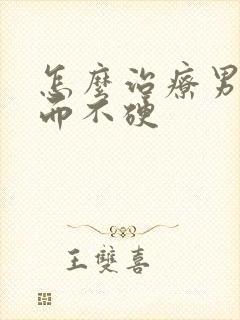 怎麼治療男
而不硬
王雙喜